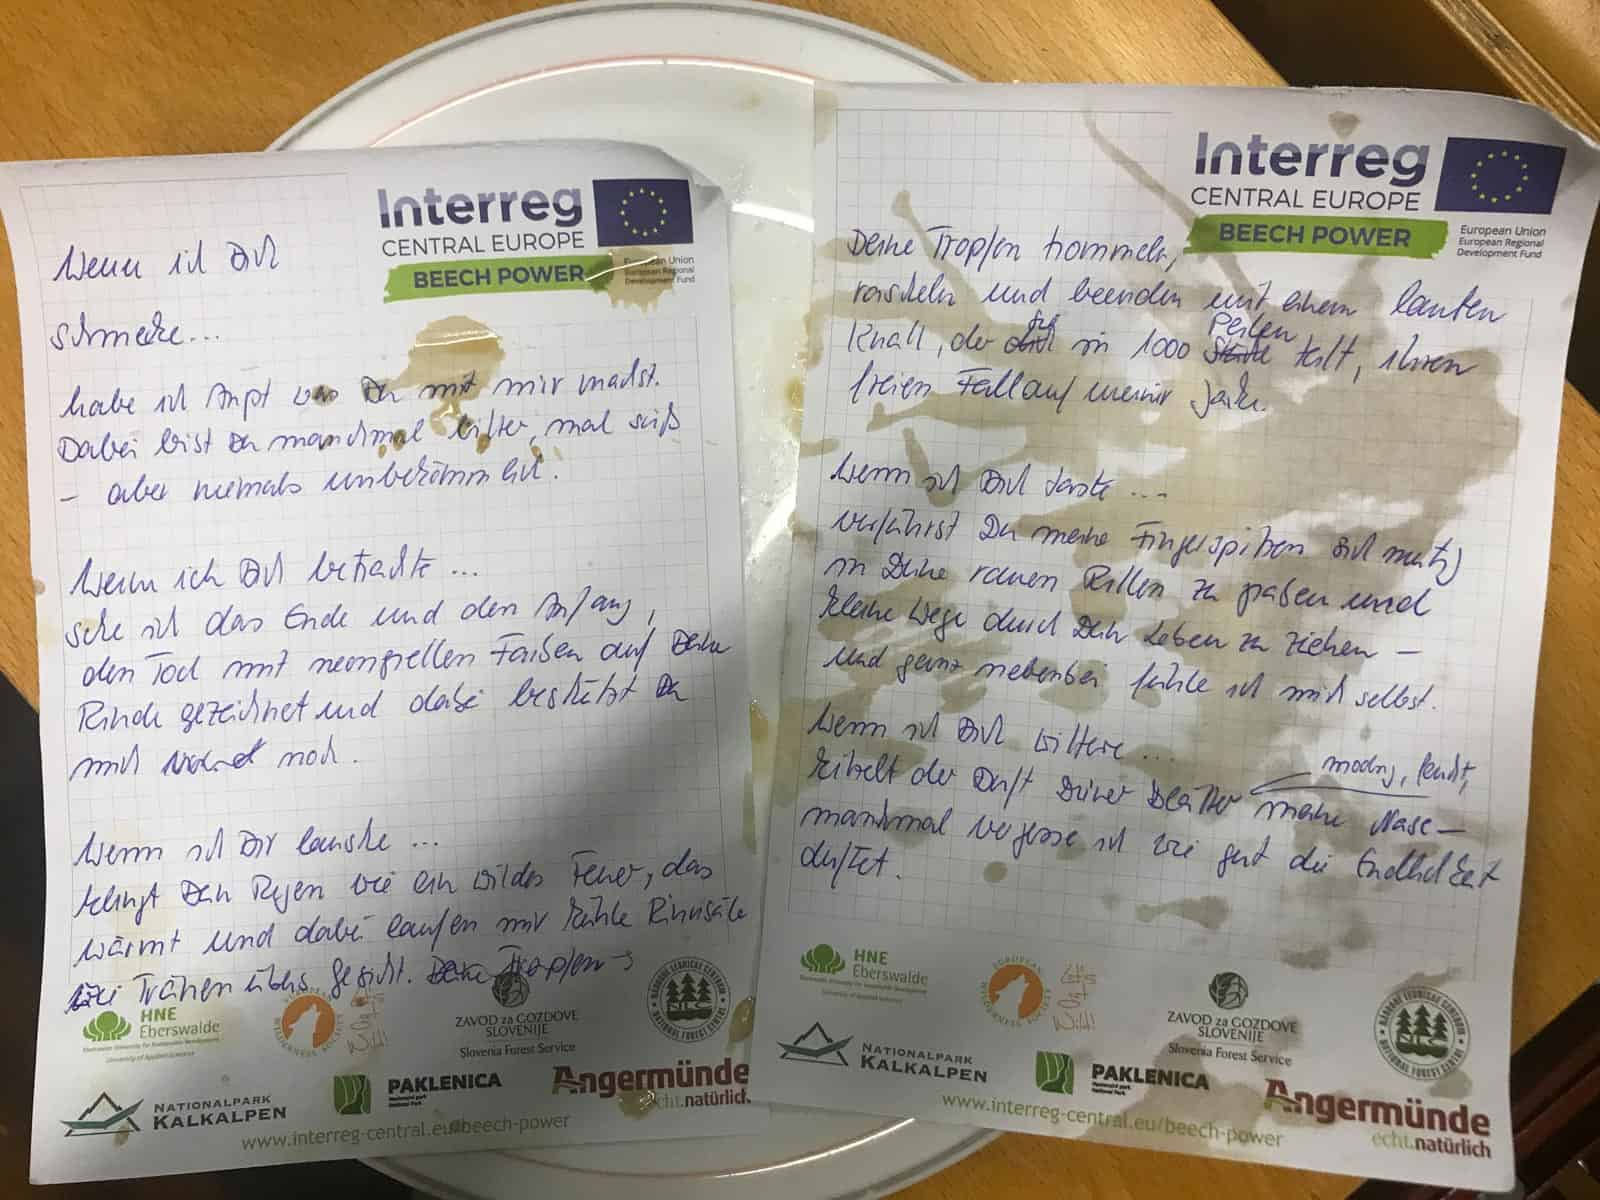 Interreg
CENTRAL EUROPE
BEECH POWER
European Union
European Regional
Development Fund
Wenn ich Dich
schmecke...
habe ich Angst was Du mit mir machst.
Dabei bist Du manchmal bitter, mal süß
- aber niemals unbekömmlich.
Wenn ich Dich betrachte ...
sehe ich das Ende und den Anfang,
den Tod mit neongrellen Farben auf Deine
Rinde gezeichnet und dabei beschützt Du
mich noch.
Wenn ich Dir lausche ...
klingt Dein Regen wie ein wildes Feuer, das
wärmt und dabei laufen mir kühle Rinnsäle
wie Tränen übers Gesicht. Deine Tropfen →
HNE
Eberswalde
University of Applied Sciences
EUROPEAN
WILDERNESS SOCIETY
Let's
Go
Wild!
ZAVOD za GOZDOVE
SLOVENIJE
Slovenia Forest Service
NATIONAL FOREST CENTRE
NATIONALPARK
KALKALPEN
PAKLENICA
Nacionalni park
National Park
Angermünde
echt.natürlich.
www.interreg-central.eu/beech-power
Interreg
CENTRAL EUROPE
BEECH POWER
European Union
European Regional
Development Fund
Deine Tropfen trommeln,
rascheln und beenden mit einem lauten
Knall, der sich in 1000 Perlen teilt, ihren
freien Fall auf meiner Jacke.
Wenn ich Dich taste ...
verführst Du meine Fingerspitzen sich mutig
in Deine rauen Rillen zu graben und
kleine Wege durch Dein Leben zu ziehen –
und ganz nebenbei fühle ich mich selbst.
Wenn ich Dich wittere ...
modrig, feucht,
kitzelt der Duft Deiner Blätter meine Nase –
manchmal vergesse ich wie gut die Endlichkeit
duftet.
HNE
Eberswalde
University of Applied Sciences
EUROPEAN
WILDERNESS SOCIETY
Let's
Go
Wild!
ZAVOD za GOZDOVE
SLOVENIJE
Slovenia Forest Service
NATIONAL FOREST CENTRE
NATIONALPARK
KALKALPEN
PAKLENICA
Nacionalni park
National Park
Angermünde
echt.natürlich
www.interreg-central.eu/beech-power